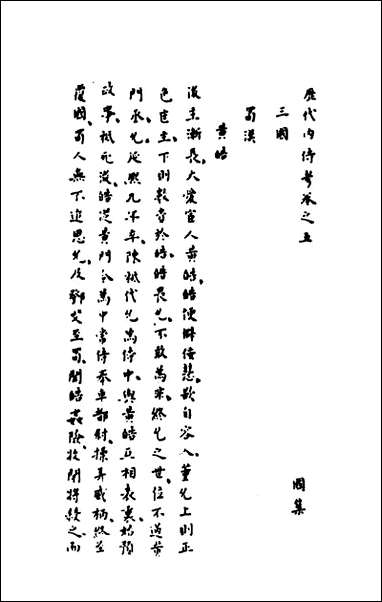 歷代內侍考卷之五
三國
蜀漢
黃皓 國集
後主漸長大愛宦人黃皓皓便辟佞慧欲自容入董允上則正
色匡主下則數責於皓皓畏允不敢為非終允之世位不過黃
門丞允延熙九年卒陳祗代允為侍中與黃皓互相表裏皓預
政事祗死後皓從黃門令為中常侍奉車都尉操弄威柄終至
覆國蜀人無不追思允及鄧艾至蜀聞皓姦險收閉將殺之而